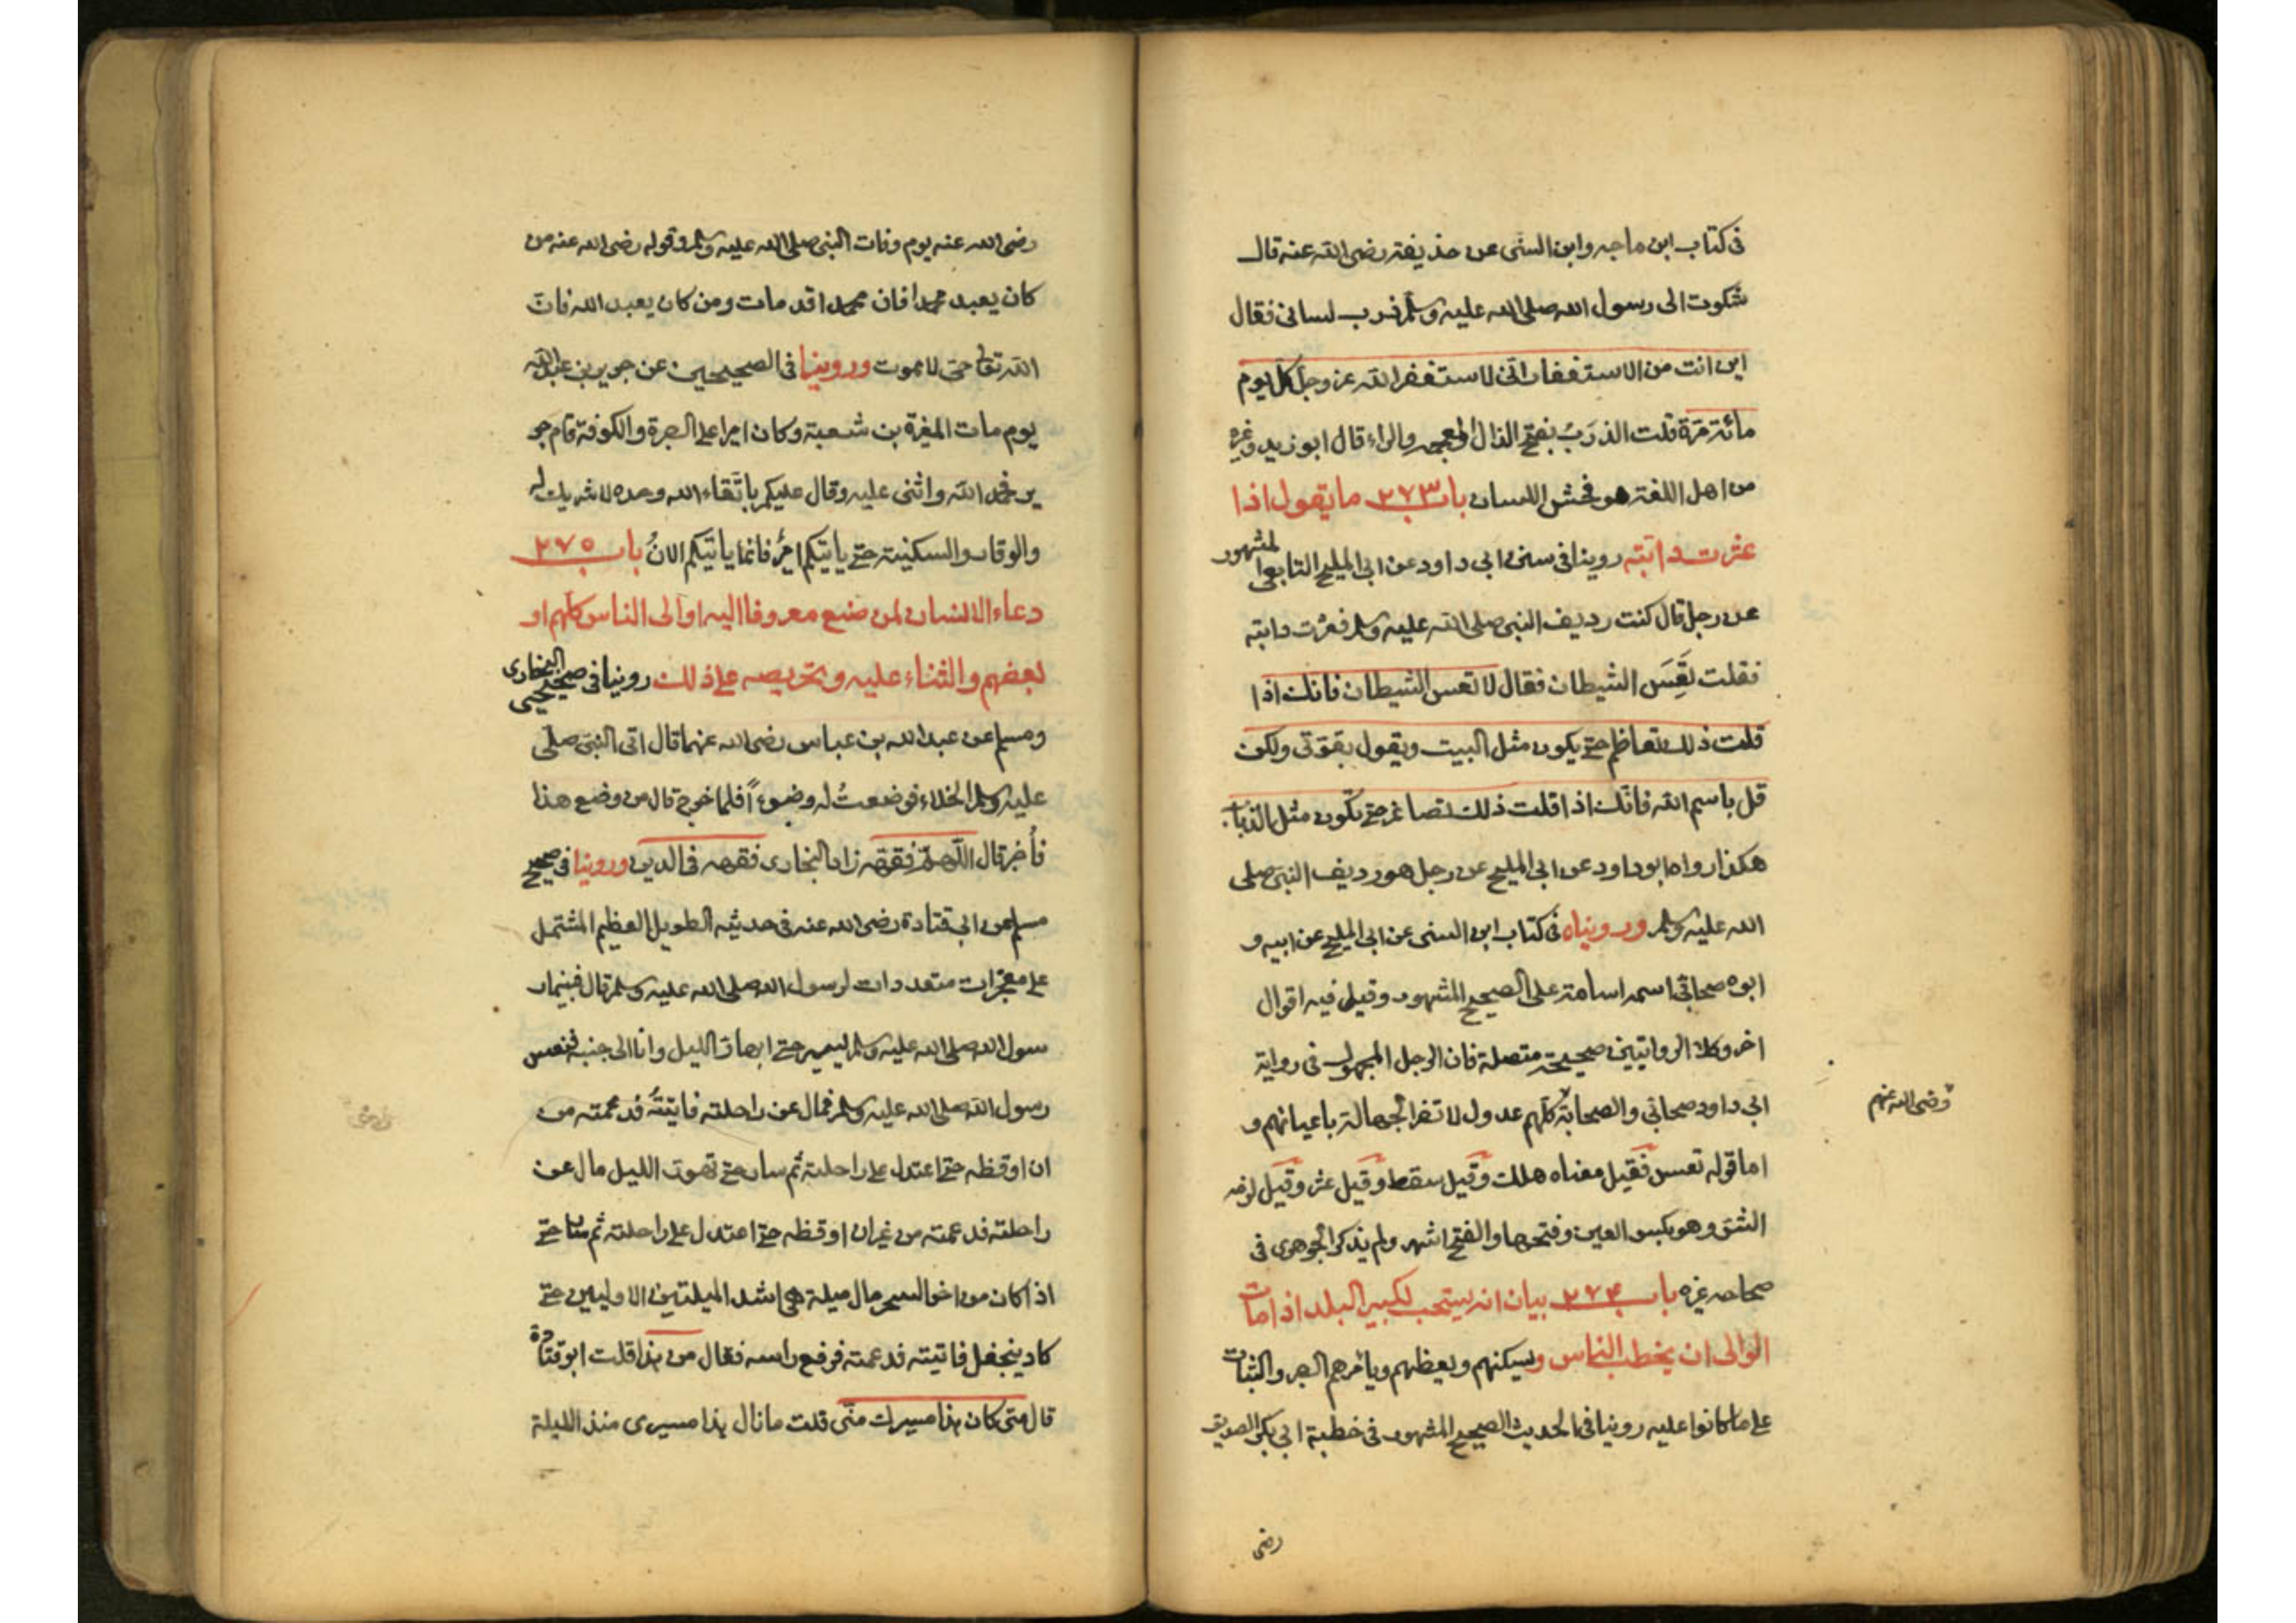 فى كتاب ابن ماجه وابن السنى عن حذيفة رضى الله عنه قال
شكوت الى رسول الله صلى الله عليه وسلم ذرب لسانى فقال
اين انت من الاستغفار انى لاستغفر الله عز وجل كل يوم
مائة مرة قلت الذرَبُ بفتح الذال المعجمه والراء قال ابو زيد وغيره
من اهل اللغة هو فحش اللسان باب ٢٧٣ ما يقول اذا
عثرت دابته روينا فى سنن ابى داود عن ابى المليح التابعى المشهور
عن رجل قال كنت رديف النبى صلى الله عليه وسلم فعثرت دابته
فقلت تَعِسَ الشيطان فقال لا تقل تعس الشيطان فانك اذا
قلت ذلك تعاظم حتى يكون مثل البيت ويقول بقوتى ولكن
قل باسم الله فانك اذا قلت ذلك تصاغر حتى يكون مثل الذباب
هكذا رواه ابو داود عن ابى المليح عن رجل هو رديف النبى صلى
الله عليه وسلم ورويناه فى كتاب ابن السنى عن ابى المليح عن ابيه و
ابوه صحابى اسمه اسامة على الصحيح المشهور وقيل فيه اقوال
اخر وكلا الروايتين صحيحة متصلة فان الرجل المجهول فى رواية
ابى داود صحابى والصحابة كلهم عدول لا تضر الجهالة باعيانهم و
رضى الله عنهم
اما قوله تعس فقيل معناه هلك وقيل سقط وقيل عثر وقيل لزمه
الشق وهو بكسر العين وفتحها والفتح اشهر ولم يذكر الجوهرى فى
صحاحه غيره باب ٢٧٤ بيان انه يستحب لكبير البلد اذا مات
الوالى ان يخطب الناس ويسكنهم ويعظهم ويأمرهم الصبر والثبات
على ما كانوا عليه روينا فى الحديث الصحيح المشهور فى خطبة ابى بكر الصديق
رضى
رضى الله عنه يوم وفات النبى صلى الله عليه وسلم وقوله رضى الله عنه من
كان يعبد محمدا فان محمدا قد مات ومن كان يعبد الله فان
الله تعالى حى لا يموت وروينا فى الصحيحين عن جرير بن عبد الله
يوم مات المغيرة بن شعبة وكان اميرا على البصرة والكوفة قام جر
ير فحمد الله واثنى عليه وقال عليكم باتقاء الله وحده لا شريك له
والوقار والسكينة حتى يأتيكم امير فانما يأتيكم الان باب ٢٧٥
دعاء الانسان لمن صنع معروفا اليه او الى الناس كلهم او
بعضهم والثناء عليه وتحريصه على ذلك روينا فى صحيحى البخارى
ومسلم عن عبد الله بن عباس رضى الله عنهما قال اتى النبى صلى
عليه وسلم الخلاء فوضعتُ له وضوءاً فلما خرج قال من وضع هذا
فأخبر قال اللهم فقهه زاد البخارى فقهه فى الدين وروينا فى صحيح
مسلم عن ابى قتادة رضى الله عنه فى حديثه الطويل العظيم المشتمل
على معجزات متعددات لرسول الله صلى الله عليه وسلم قال فبينما ر
سول الله صلى الله عليه وسلم يسير حتى ابهار الليل وانا الى جنبه فنعس
رسول الله صلى الله عليه وسلم فمال عن راحلته فاتيته فدعمته من
ان اوقظه حتى اعتدل على راحلته ثم سار حتى تهور الليل مال عن
راحلته فدعمته من غير ان اوقظه حتى اعتدل على راحلته ثم سار حتى
اذا كان من اخر السحر مال ميلة هى اشد الميلتين الاوليين حتى
كاد ينجفل فاتيته فدعمته فرفع رأسه فقال من هذا قلت ابو قتادة
قال متى كان هذا مسيرك منى قلت ما زال هذا مسيرى منذ الليلة